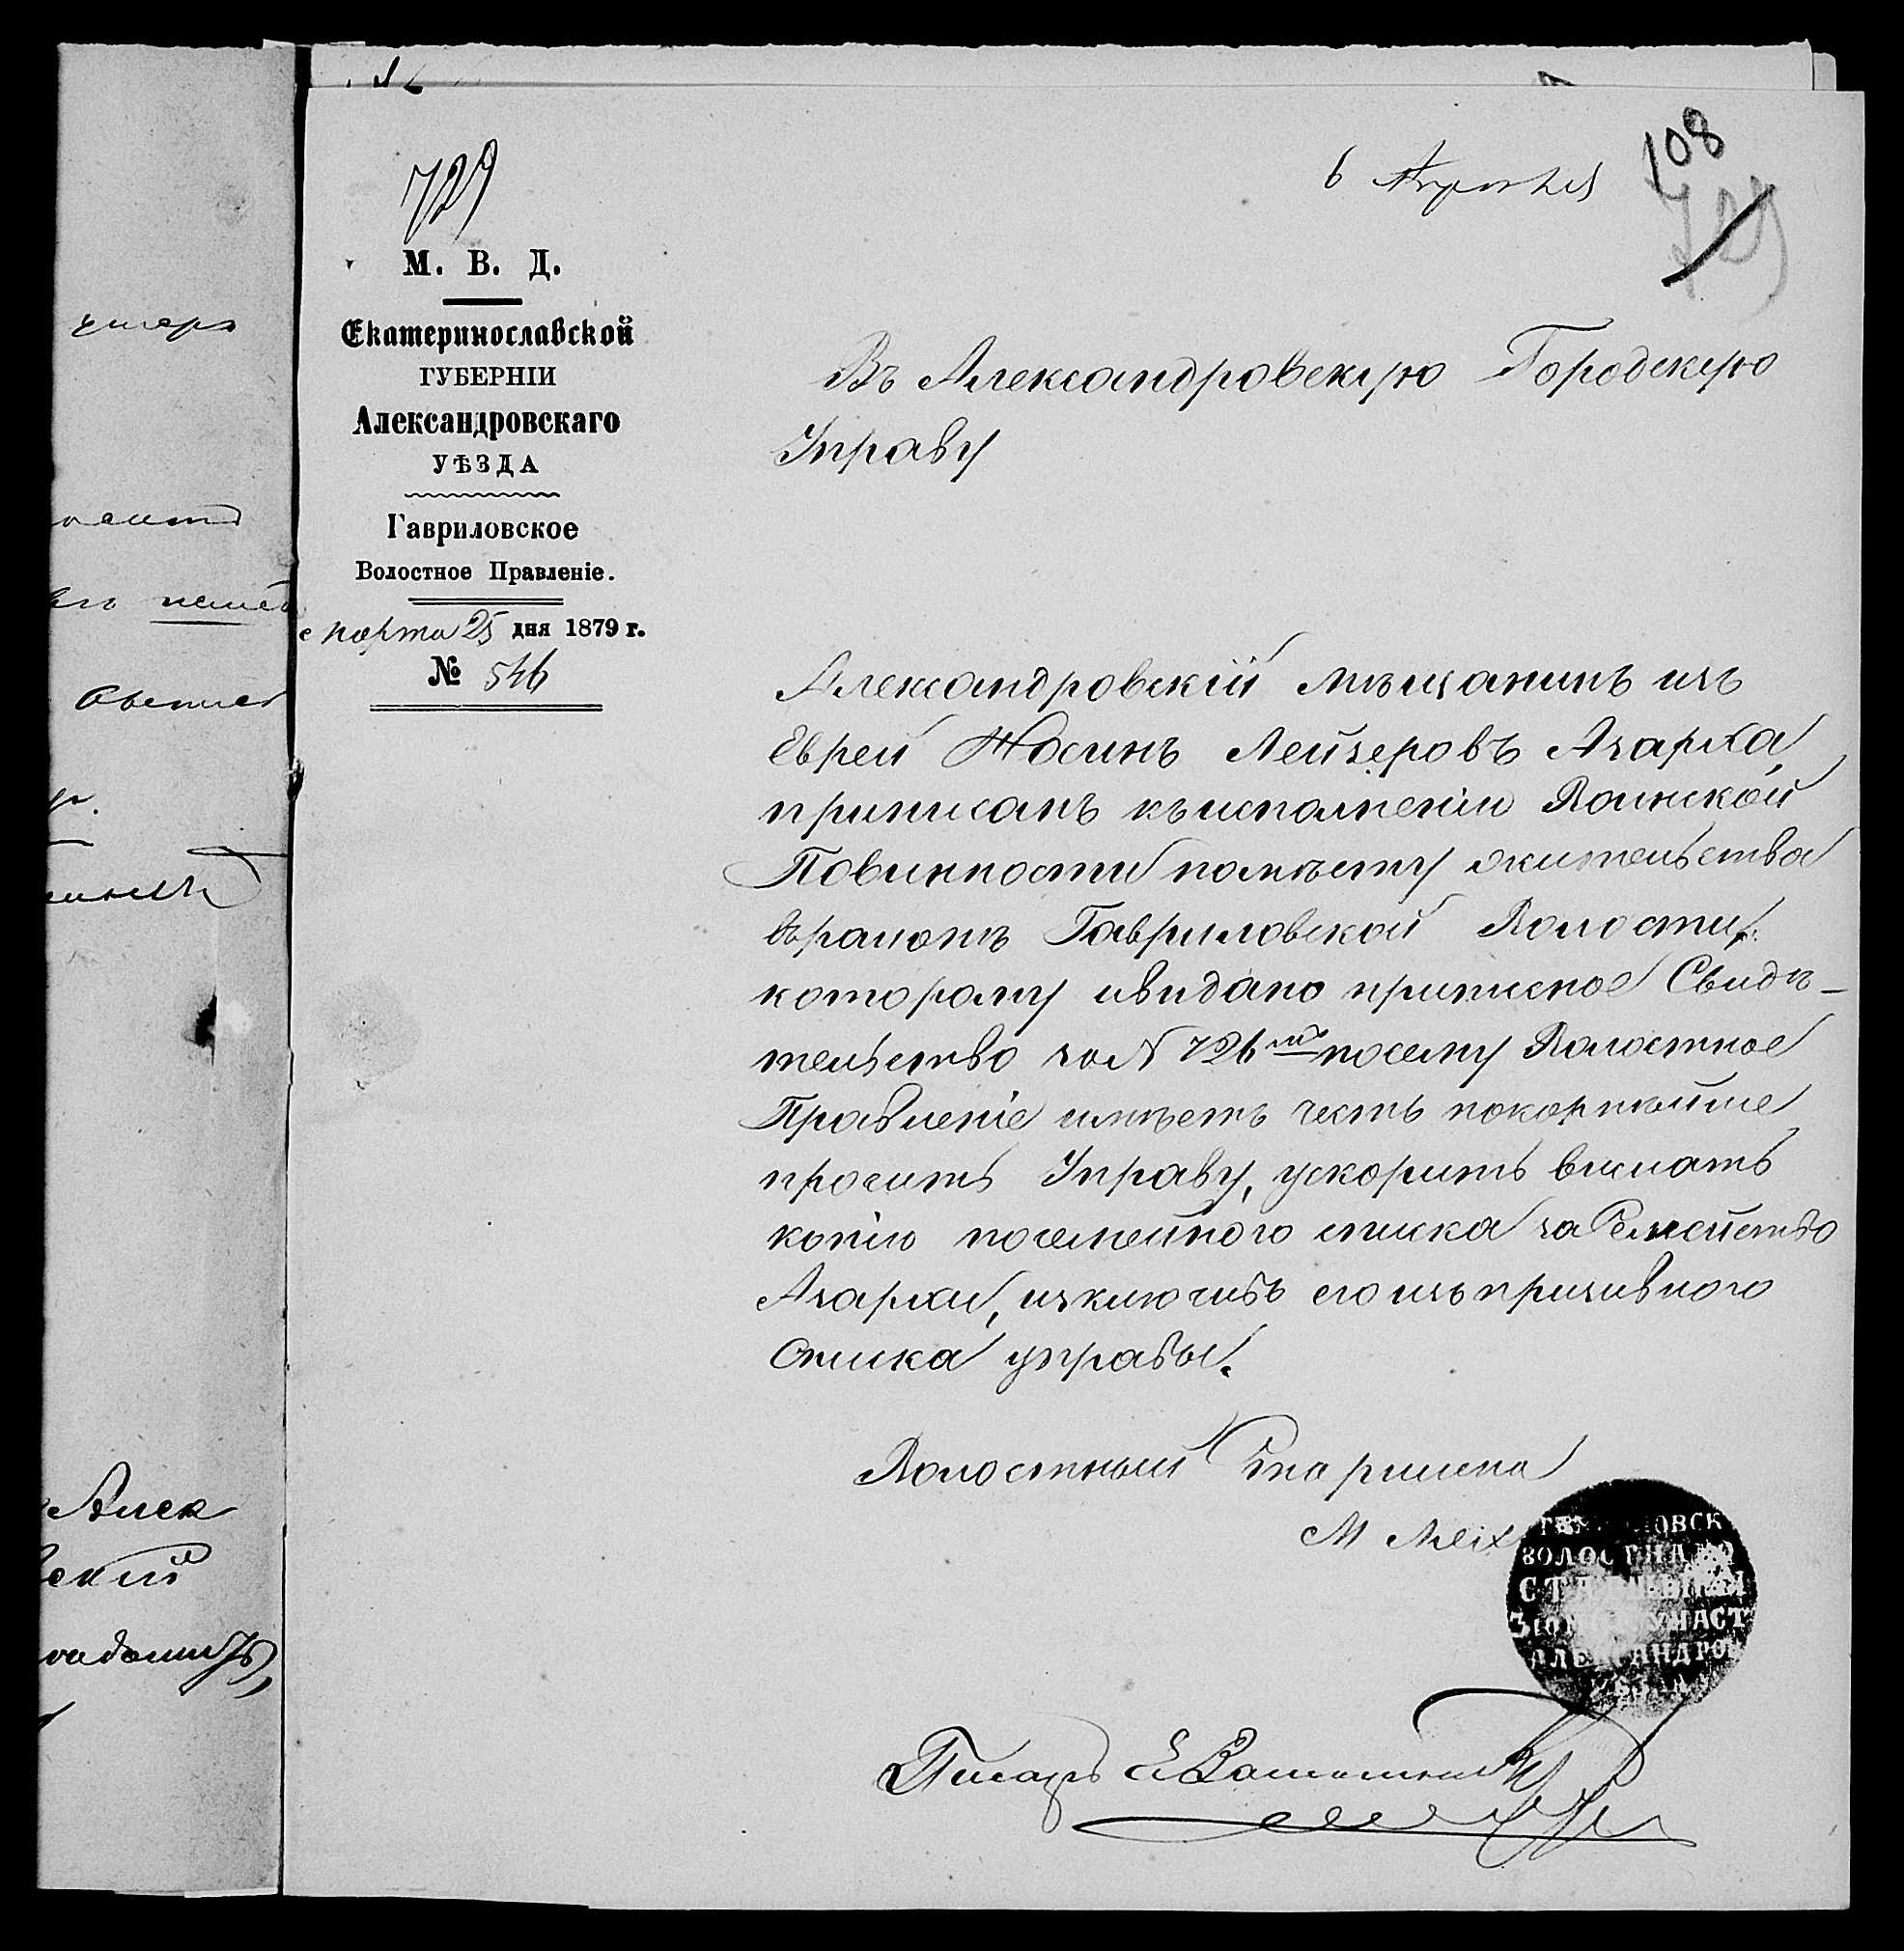 108
729
6 Апрѣля
729
М. В. Д.
Екатеринославской
ГУБЕРНІИ
Александровскаго
УѢЗДА
Гавриловское
Волостное Правленіе.
Марта 25 дня 1879 г.
№ 546
Въ Александровскую Городскую
Управу
Александровскій мѣщанинъ изъ
Еврей Лейзеровъ Азарха,
приписанъ къ исполненію Воинской
Повинности помѣсту жительства
Гавриловской Волости,
которому ивидано приписное Свидѣ-
тельство за № 726 посему Волостное
Правленіе имѣетъ честь покорнѣйше
просить Управу, ускорить висилать
копію посемейного списка за Семейство
Азархи, изключивъ его изъ призивного
списка управы.
Волостный Старшина
М
ВОЛОС
УЧАСТ
АЛЕКСАНДРОВ
Писарь